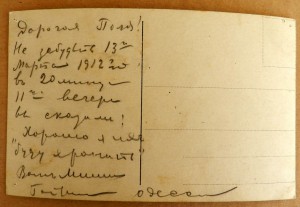 Дорогая Поля!
Не забудьте 13го
Марта 1912 го
въ 20 минутъ
11го вечера
вы сказали:
„Хорошо я
буду хранить"
Вашъ Миша
Одесса